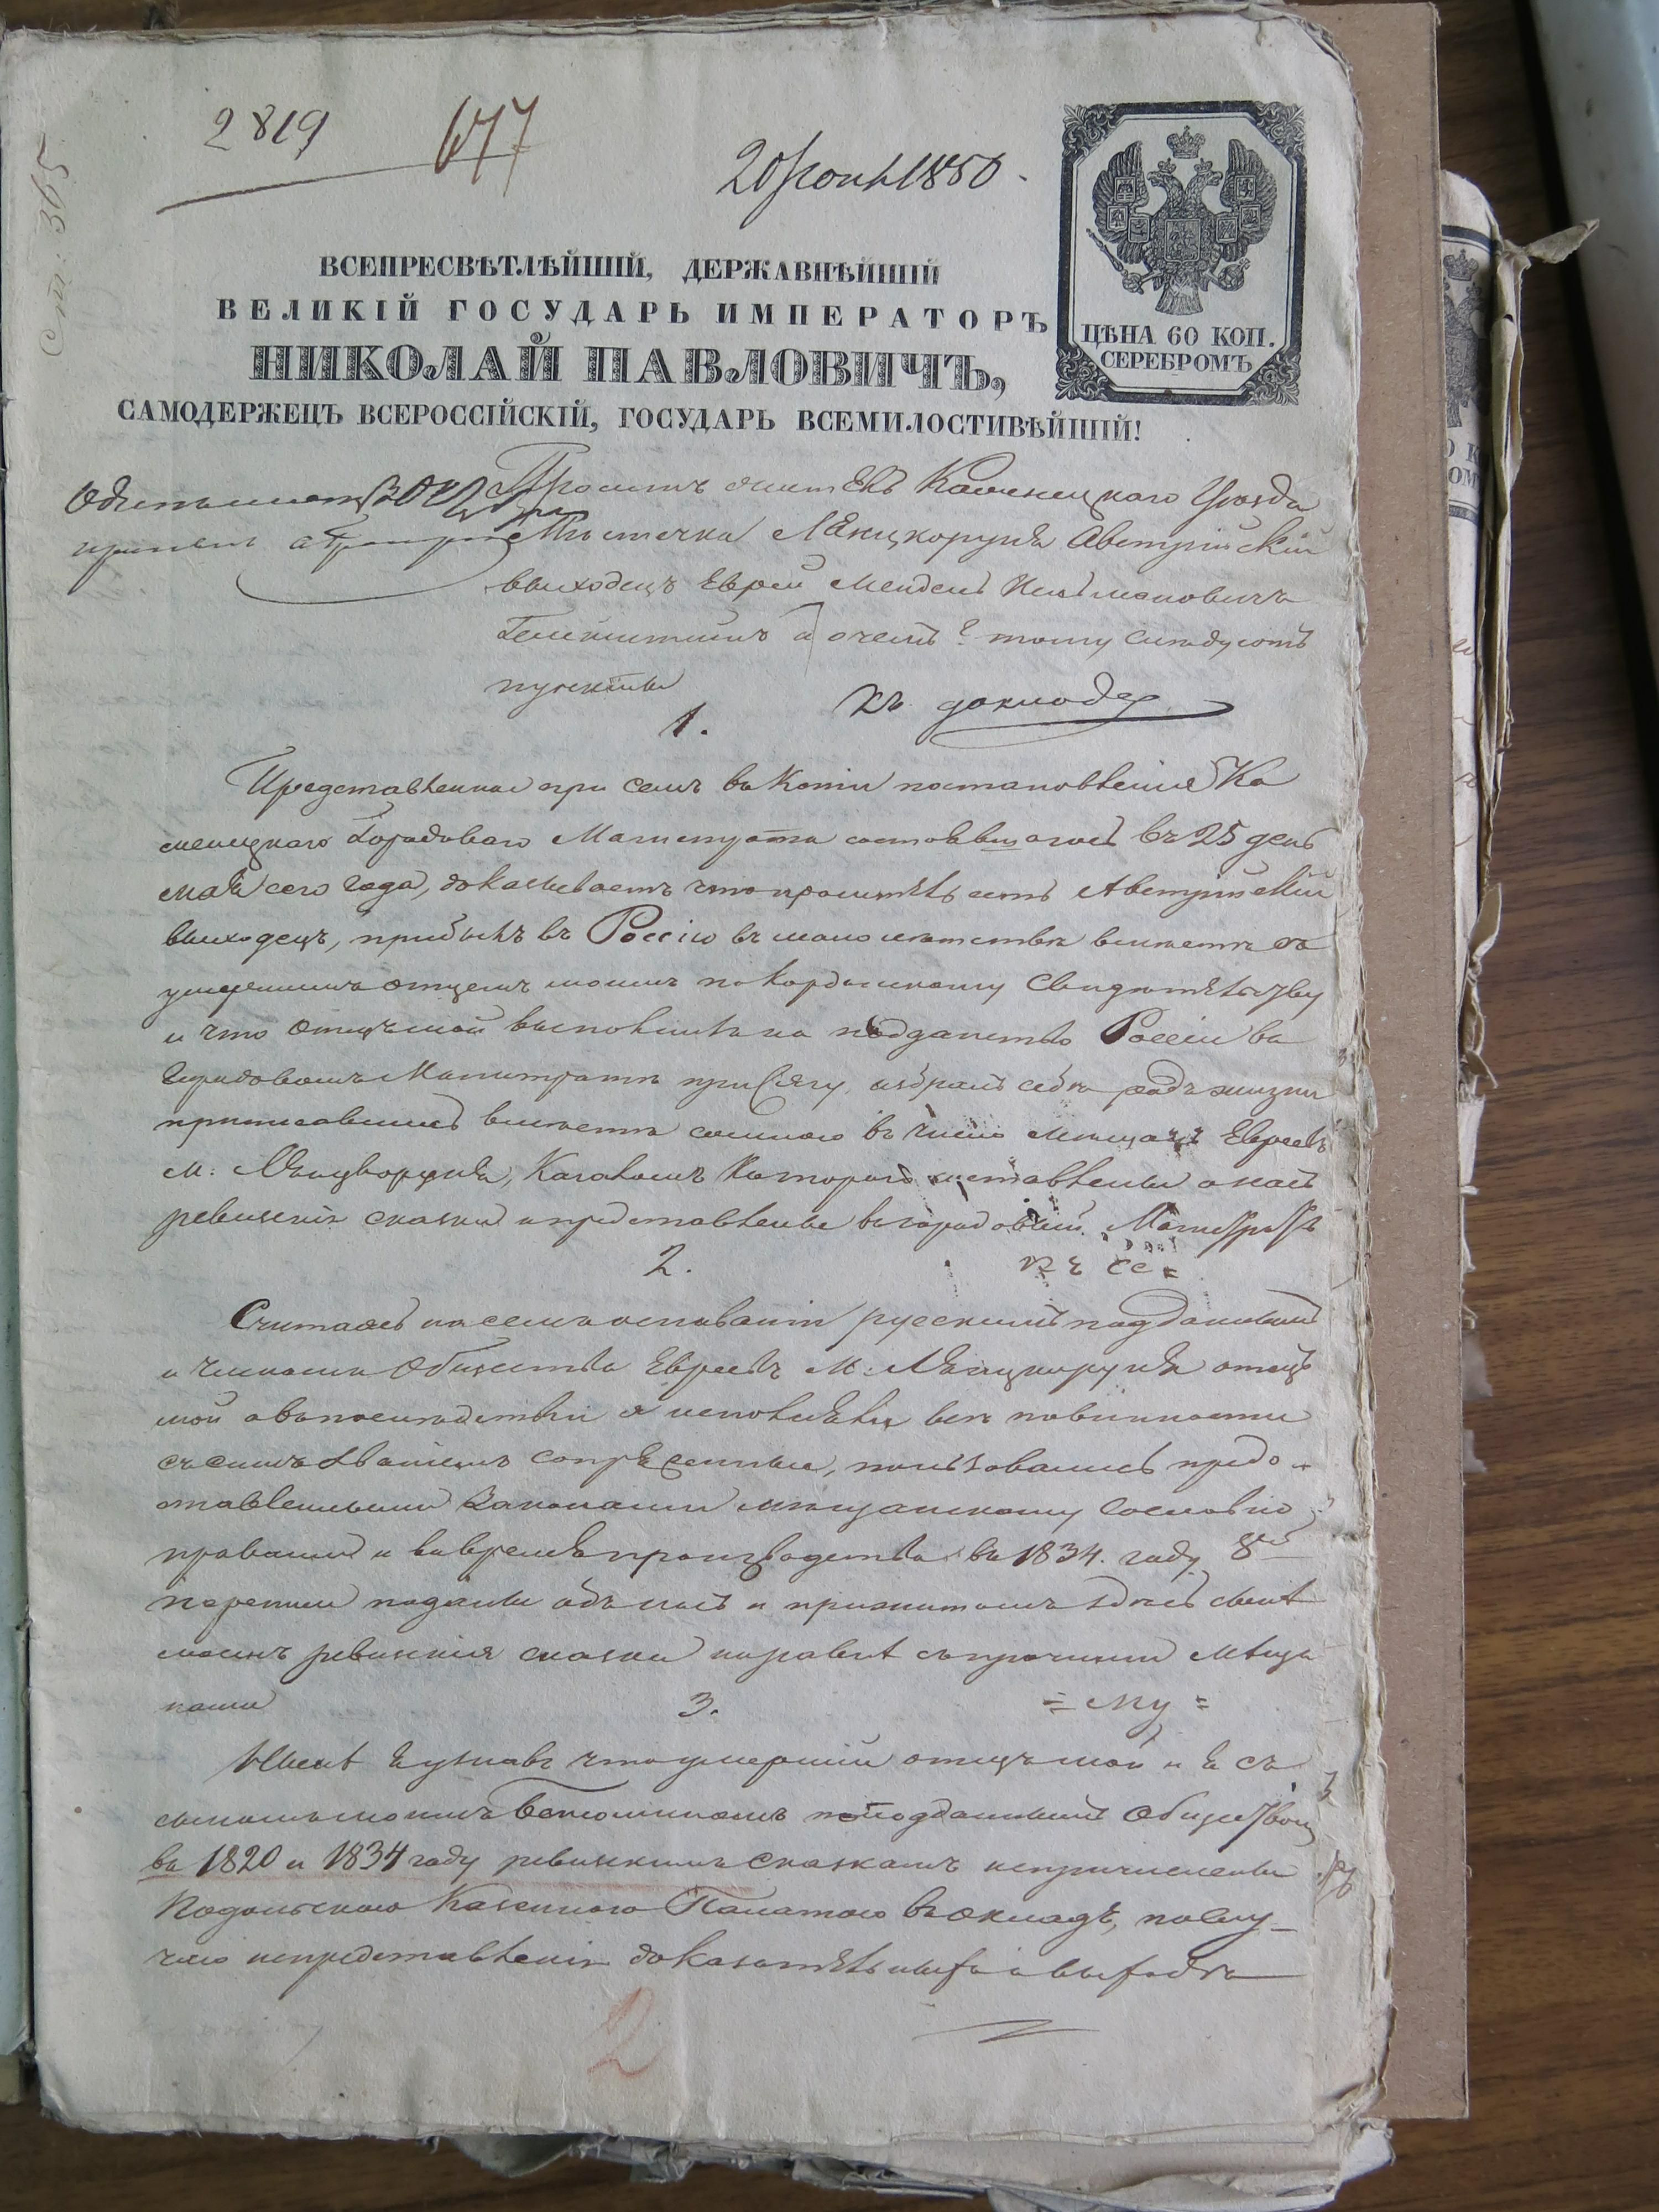 2819
677
20 Іюнь 1850.
ст. 365
ЦѢНА 60 КОП.
СЕРЕБРОМЪ
ВСЕПРЕСВѢТЛѢЙШІЙ, ДЕРЖАВНѢЙШІЙ
ВЕЛИКІЙ ГОСУДАРЬ ИМПЕРАТОРЪ
НИКОЛАЙ ПАВЛОВИЧЪ,
САМОДЕРЖЕЦЪ ВСЕРОССІЙСКІЙ, ГОСУДАРЬ ВСЕМИЛОСТИВѢЙШІЙ!
Проситъ житель Каменецкаго Уѣзда
Мѣстечка Лянцкоруня Австрійскій
выходецъ Еврей Мендель
а о чемъ? тому слѣдуютъ
пункты
къ докладу
1.
Представленное при семъ въ копіи постановленіе Ка
менецкаго Городоваго Магистрата состоявшагося въ 25 день
мая сего года, доказываетъ что проситель есть Австрійскій
выходецъ, прибылъ въ Россію въ малолѣтствѣ вмѣстѣ съ
умершимъ отцемъ моимъ по кордонному свидѣтельству
и что отецъ мой выполнилъ на подданство Россіи въ
Городовомъ Магистратѣ присягу, избралъ себѣ родъ жизни
приписавшись вмѣстѣ со мною въ число мѣщанъ Евреевъ
м: Лянцкоруня, Кагаломъ котораго составлены о насъ
ревизскія сказки и представлены въ городовый Магистратъ
2.
Считаясь на семъ основаніи русскимъ подданнымъ
и членомъ Общества Евреевъ м: Лянцкоруня отецъ
мой а въ послѣдствіи я исполняли всѣ повинности
съ симъ званіемъ сопряженныя, пользовались предо
ставленными Законами мѣщанскому сословію
правами и во время производства въ 1834. году 8й
переписи поданы объ насъ и прижитомъ здѣсь сынѣ
моемъ ревизскія сказки наравнѣ съ прочими мѣща
нами
3.
= му =
Нынѣ я узналъ что умершій отецъ мой и я съ
сыномъ моимъ по поданнымъ Обществомъ
въ 1820 и 1834 году ревизскимъ сказкамъ непричислены
Подольскою Казенною Палатою въ окладъ, по слу-
чаю непредставленія доказательства о выходѣ
2